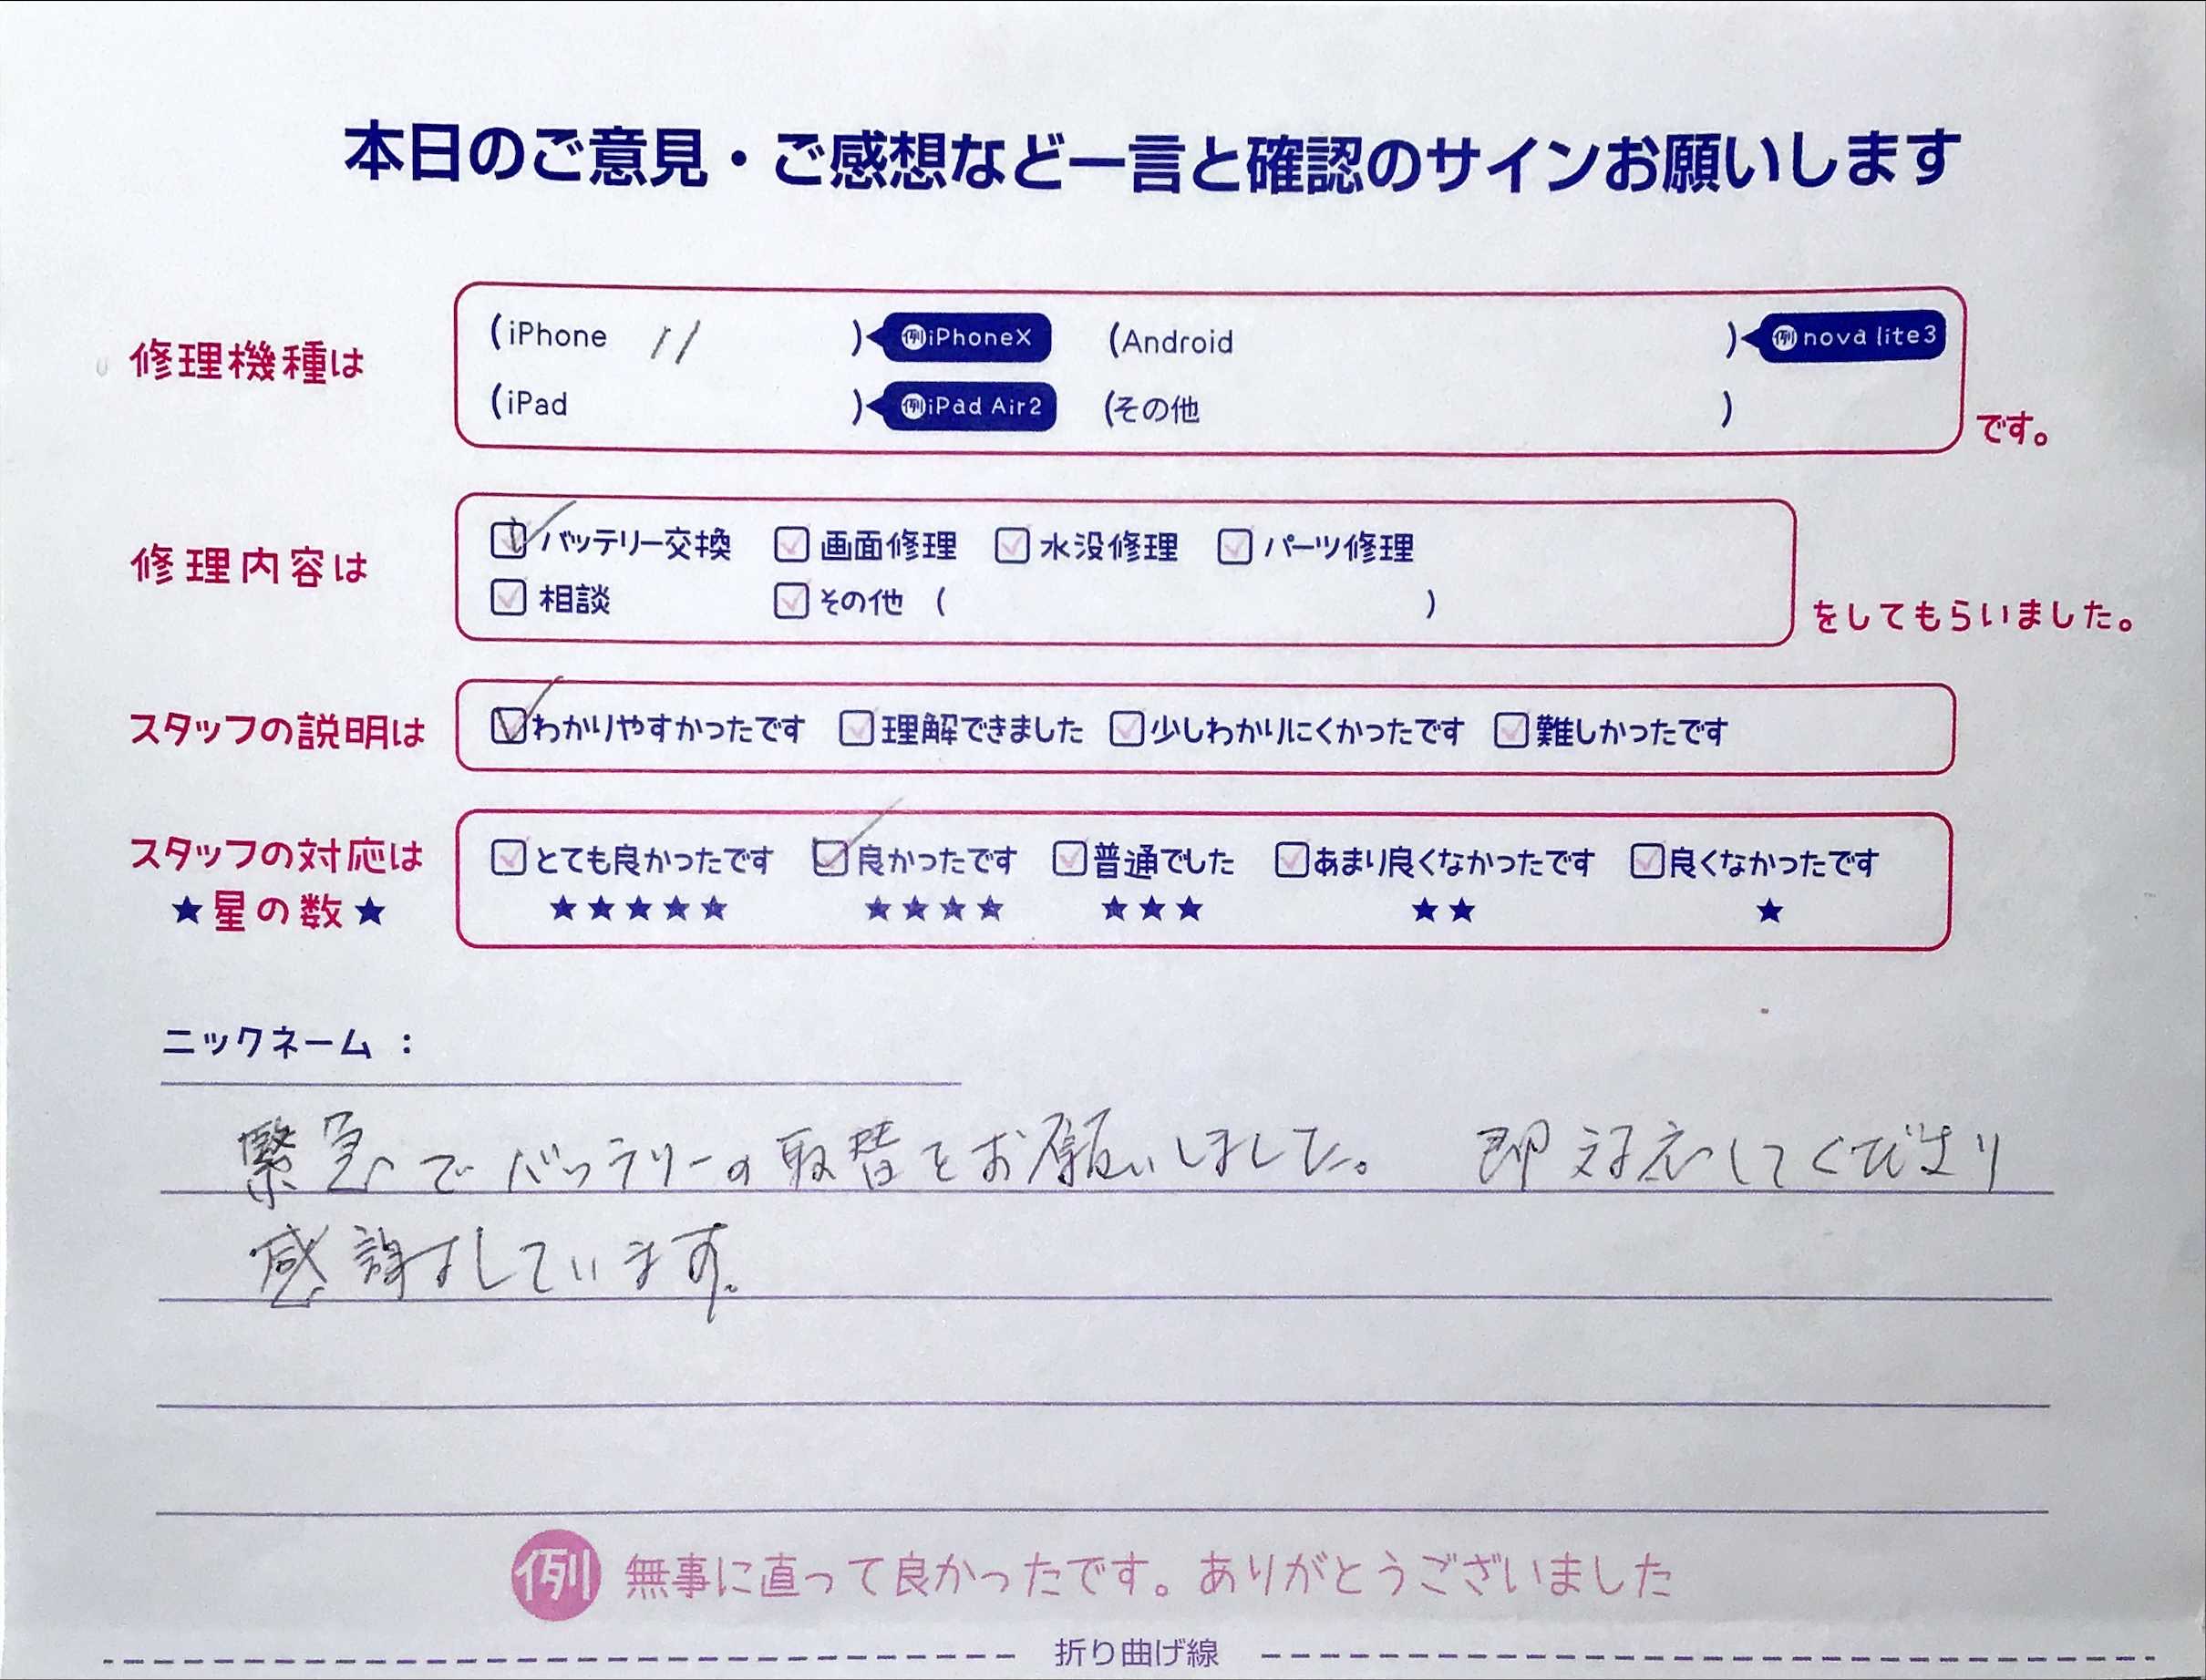 本日のご意見・ご感想など一言と確認のサインお願いします
修理機種は
(iPhone 11 ) 例iPhoneX (Android ) 例nova lite3
(iPad ) 例iPad Air2 (その他 ) です。
修理内容は
バッテリー交換 画面修理 水没修理 パーツ修理
相談 その他 ( ) をしてもらいました。
スタッフの説明は わかりやすかったです 理解できました 少しわかりにくかったです 難しかったです
スタッフの対応は とても良かったです 良かったです 普通でした あまり良くなかったです 良くなかったです
★星の数★ ★★★★★ ★★★★ ★★★ ★★ ★
ニックネーム：
緊急でバッテリーの取替をお願いしました。 即対応してくださり
感謝しています。
例 無事に直って良かったです。ありがとうございました
折り曲げ線